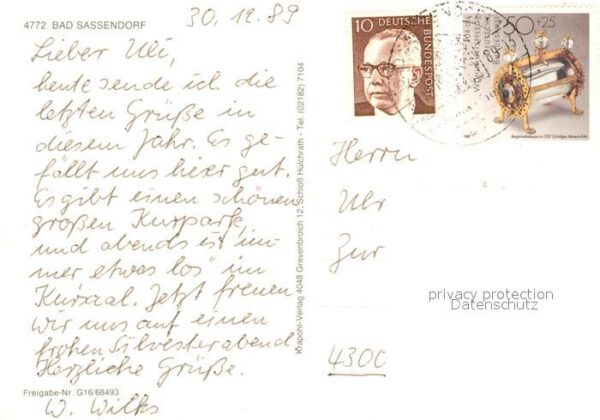 4772 BAD SASSENDORF
30.12.89
Lieber Uli,
heute sende ich die
letzten Grüße in
diesem Jahr. Es ge-
fällt uns hier gut.
Es gibt einen schönen
großen Kurpark,
und abends ist "im-
mer etwas los" im
Kursaal. Jetzt freuen
wir uns auf einen
frohen Silvesterabend
Herzliche Grüße.
Freigabe-Nr. G16/68493
W. Wilks
Krapohl-Verlag 4048 Grevenbroich 12, Schloß Hülchrath · Tel. (02182) 7104
10 DEUTSCHE BUNDESPOST
50+25
Herrn
Ulr
Zur
privacy protection
Datenschutz
4300